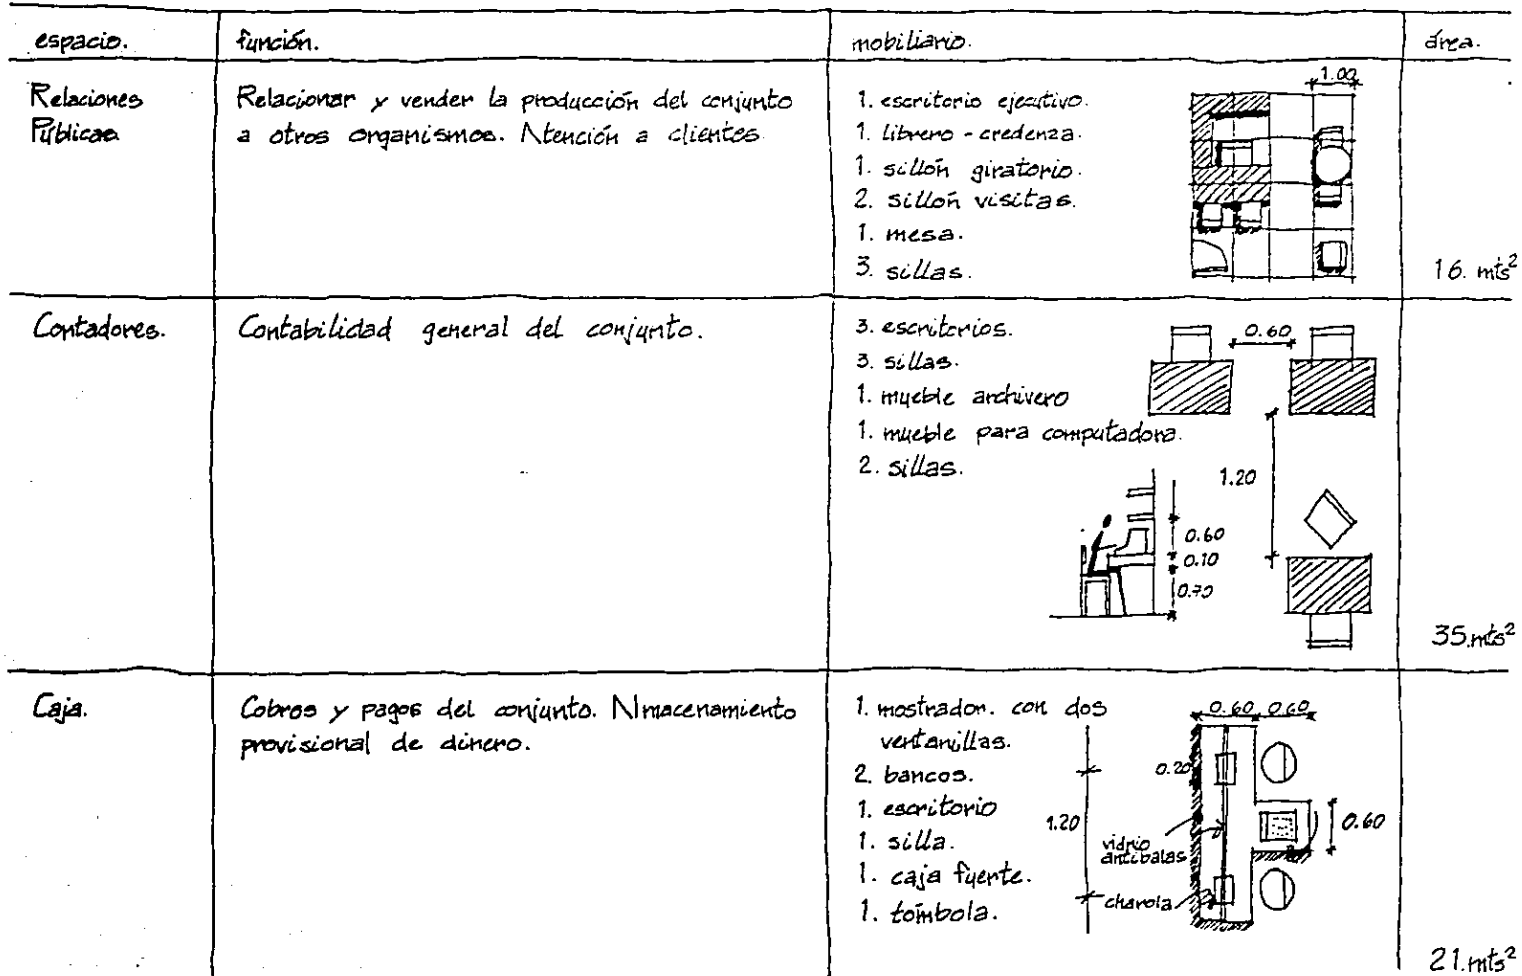 espacio. función. mobiliario. área.
Relaciones Públicas
Relacionar y vender la producción del conjunto
a otros organismos. Atención a clientes
1. escritorio ejecutivo.
1. librero - credenza.
1. sillón giratorio.
2. sillón visitas.
1. mesa.
3. sillas.
1.00
16. mts²
Contadores.
Contabilidad general del conjunto.
3. escritorios.
3. sillas.
1. mueble archivero
1. mueble para computadora.
2. sillas.
0.60
1.20
0.60
0.10
0.70
35.mts²
Caja.
Cobros y pagos del conjunto. Almacenamiento
provisional de dinero.
1. mostrador. con dos
ventanillas.
2. bancos.
1. escritorio
1. silla.
1. caja fuerte.
1. tómbola.
0.60 0.60
0.20
1.20
0.60
vidrio
antibalas
charola
21.mts²